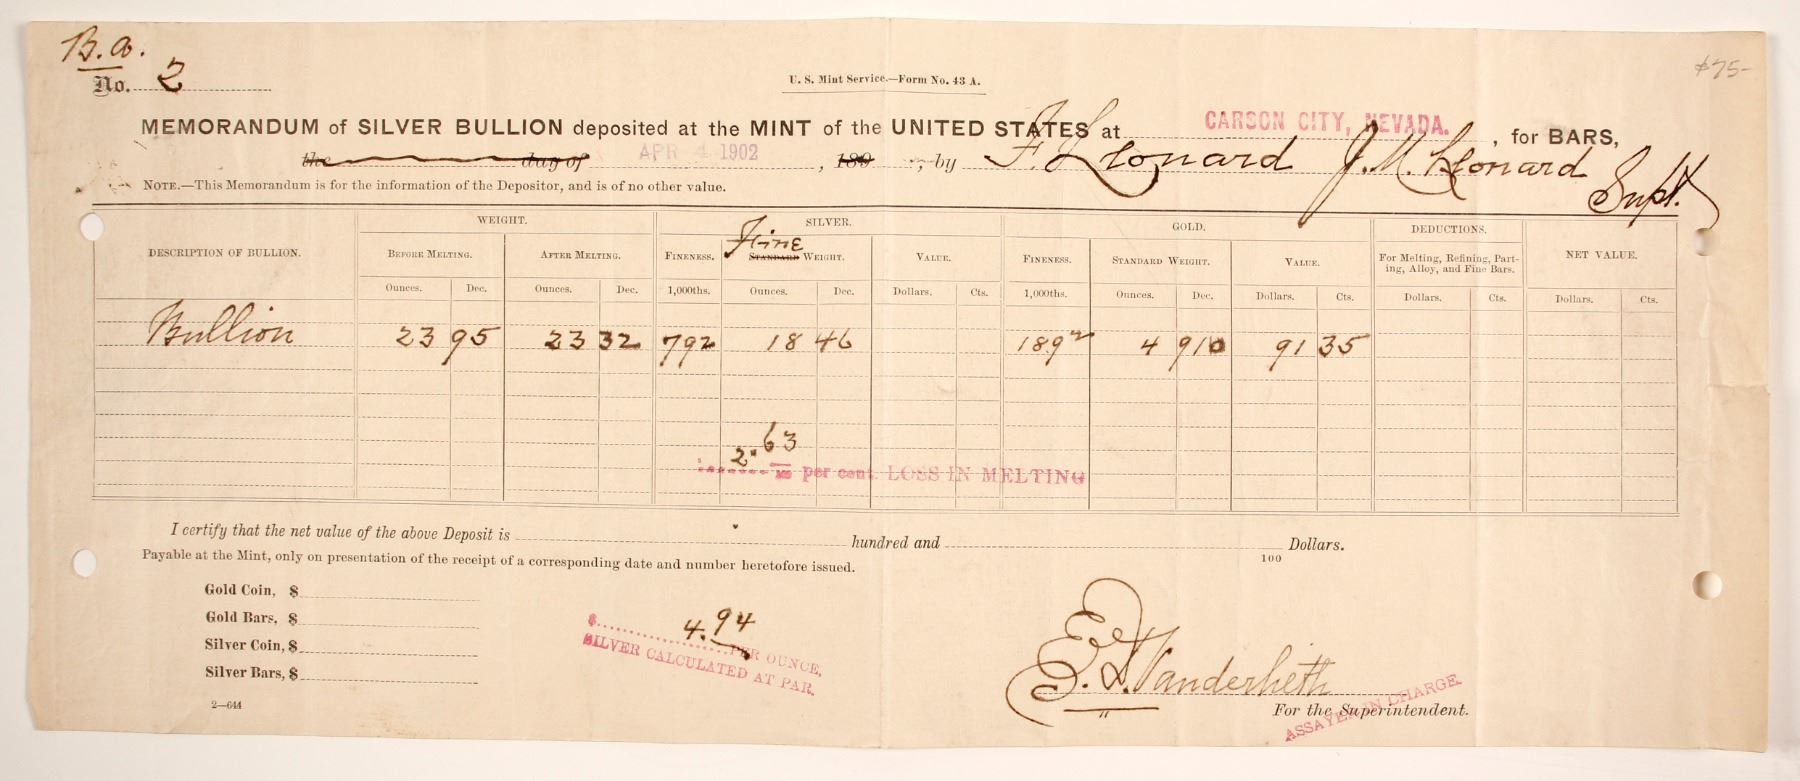 B.a.
No. 2
$75-
U. S. Mint Service.—Form No. 43 A.
MEMORANDUM of SILVER BULLION deposited at the MINT of the UNITED STATES at CARSON CITY, NEVADA. , for BARS,
the day of APR 4 1902 , 189 , by F. Leonard J. M. Leonard Supt.
NOTE.—This Memorandum is for the information of the Depositor, and is of no other value.
DESCRIPTION OF BULLION. WEIGHT. SILVER. GOLD. DEDUCTIONS. NET VALUE.
BEFORE MELTING. AFTER MELTING. FINENESS. Fine STANDARD WEIGHT. VALUE. FINENESS. STANDARD WEIGHT. VALUE. For Melting, Refining, Parting, Alloy, and Fine Bars.
Ounces. Dec. Ounces. Dec. 1,000ths. Ounces. Dec. Dollars. Cts. 1,000ths. Ounces. Dec. Dollars. Cts. Dollars. Cts. Dollars. Cts.
Bullion 23 95 23 32 792 18 46 189 2 4 910 91 35
2. 63
100 per cent. LOSS IN MELTING
I certify that the net value of the above Deposit is hundred and 100 Dollars.
Payable at the Mint, only on presentation of the receipt of a corresponding date and number heretofore issued.
Gold Coin, $
Gold Bars, $
Silver Coin, $
Silver Bars, $
2—644
$ 4.94 PER OUNCE,
SILVER CALCULATED AT PAR.
For the Superintendent.
ASSAYER IN CHARGE.